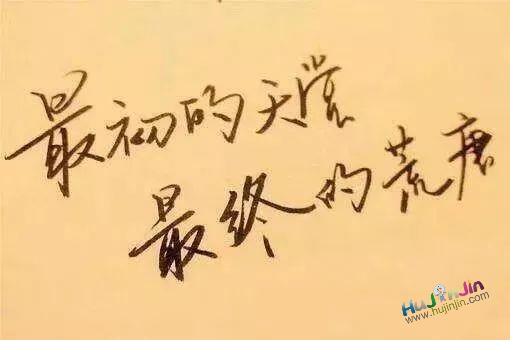 最初的天堂
最终的荒唐
HuJinJin
www.hujinjin.com